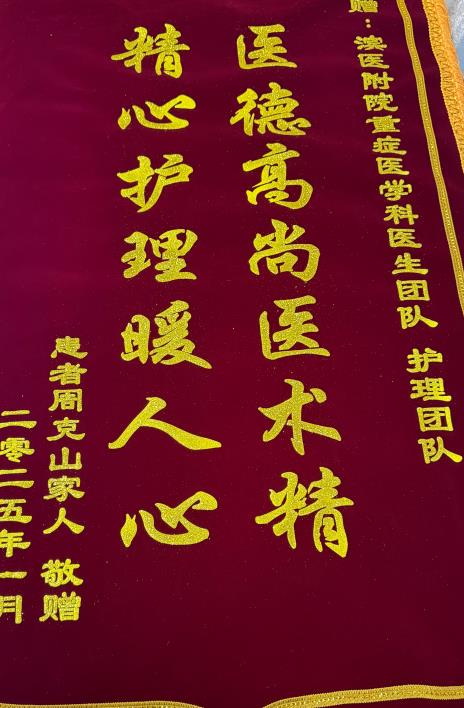 赠：滨医附院重症医学科医生团队 护理团队
医德高尚医术精
精心护理暖人心
患者周克山家人 敬赠
二零二五年一月